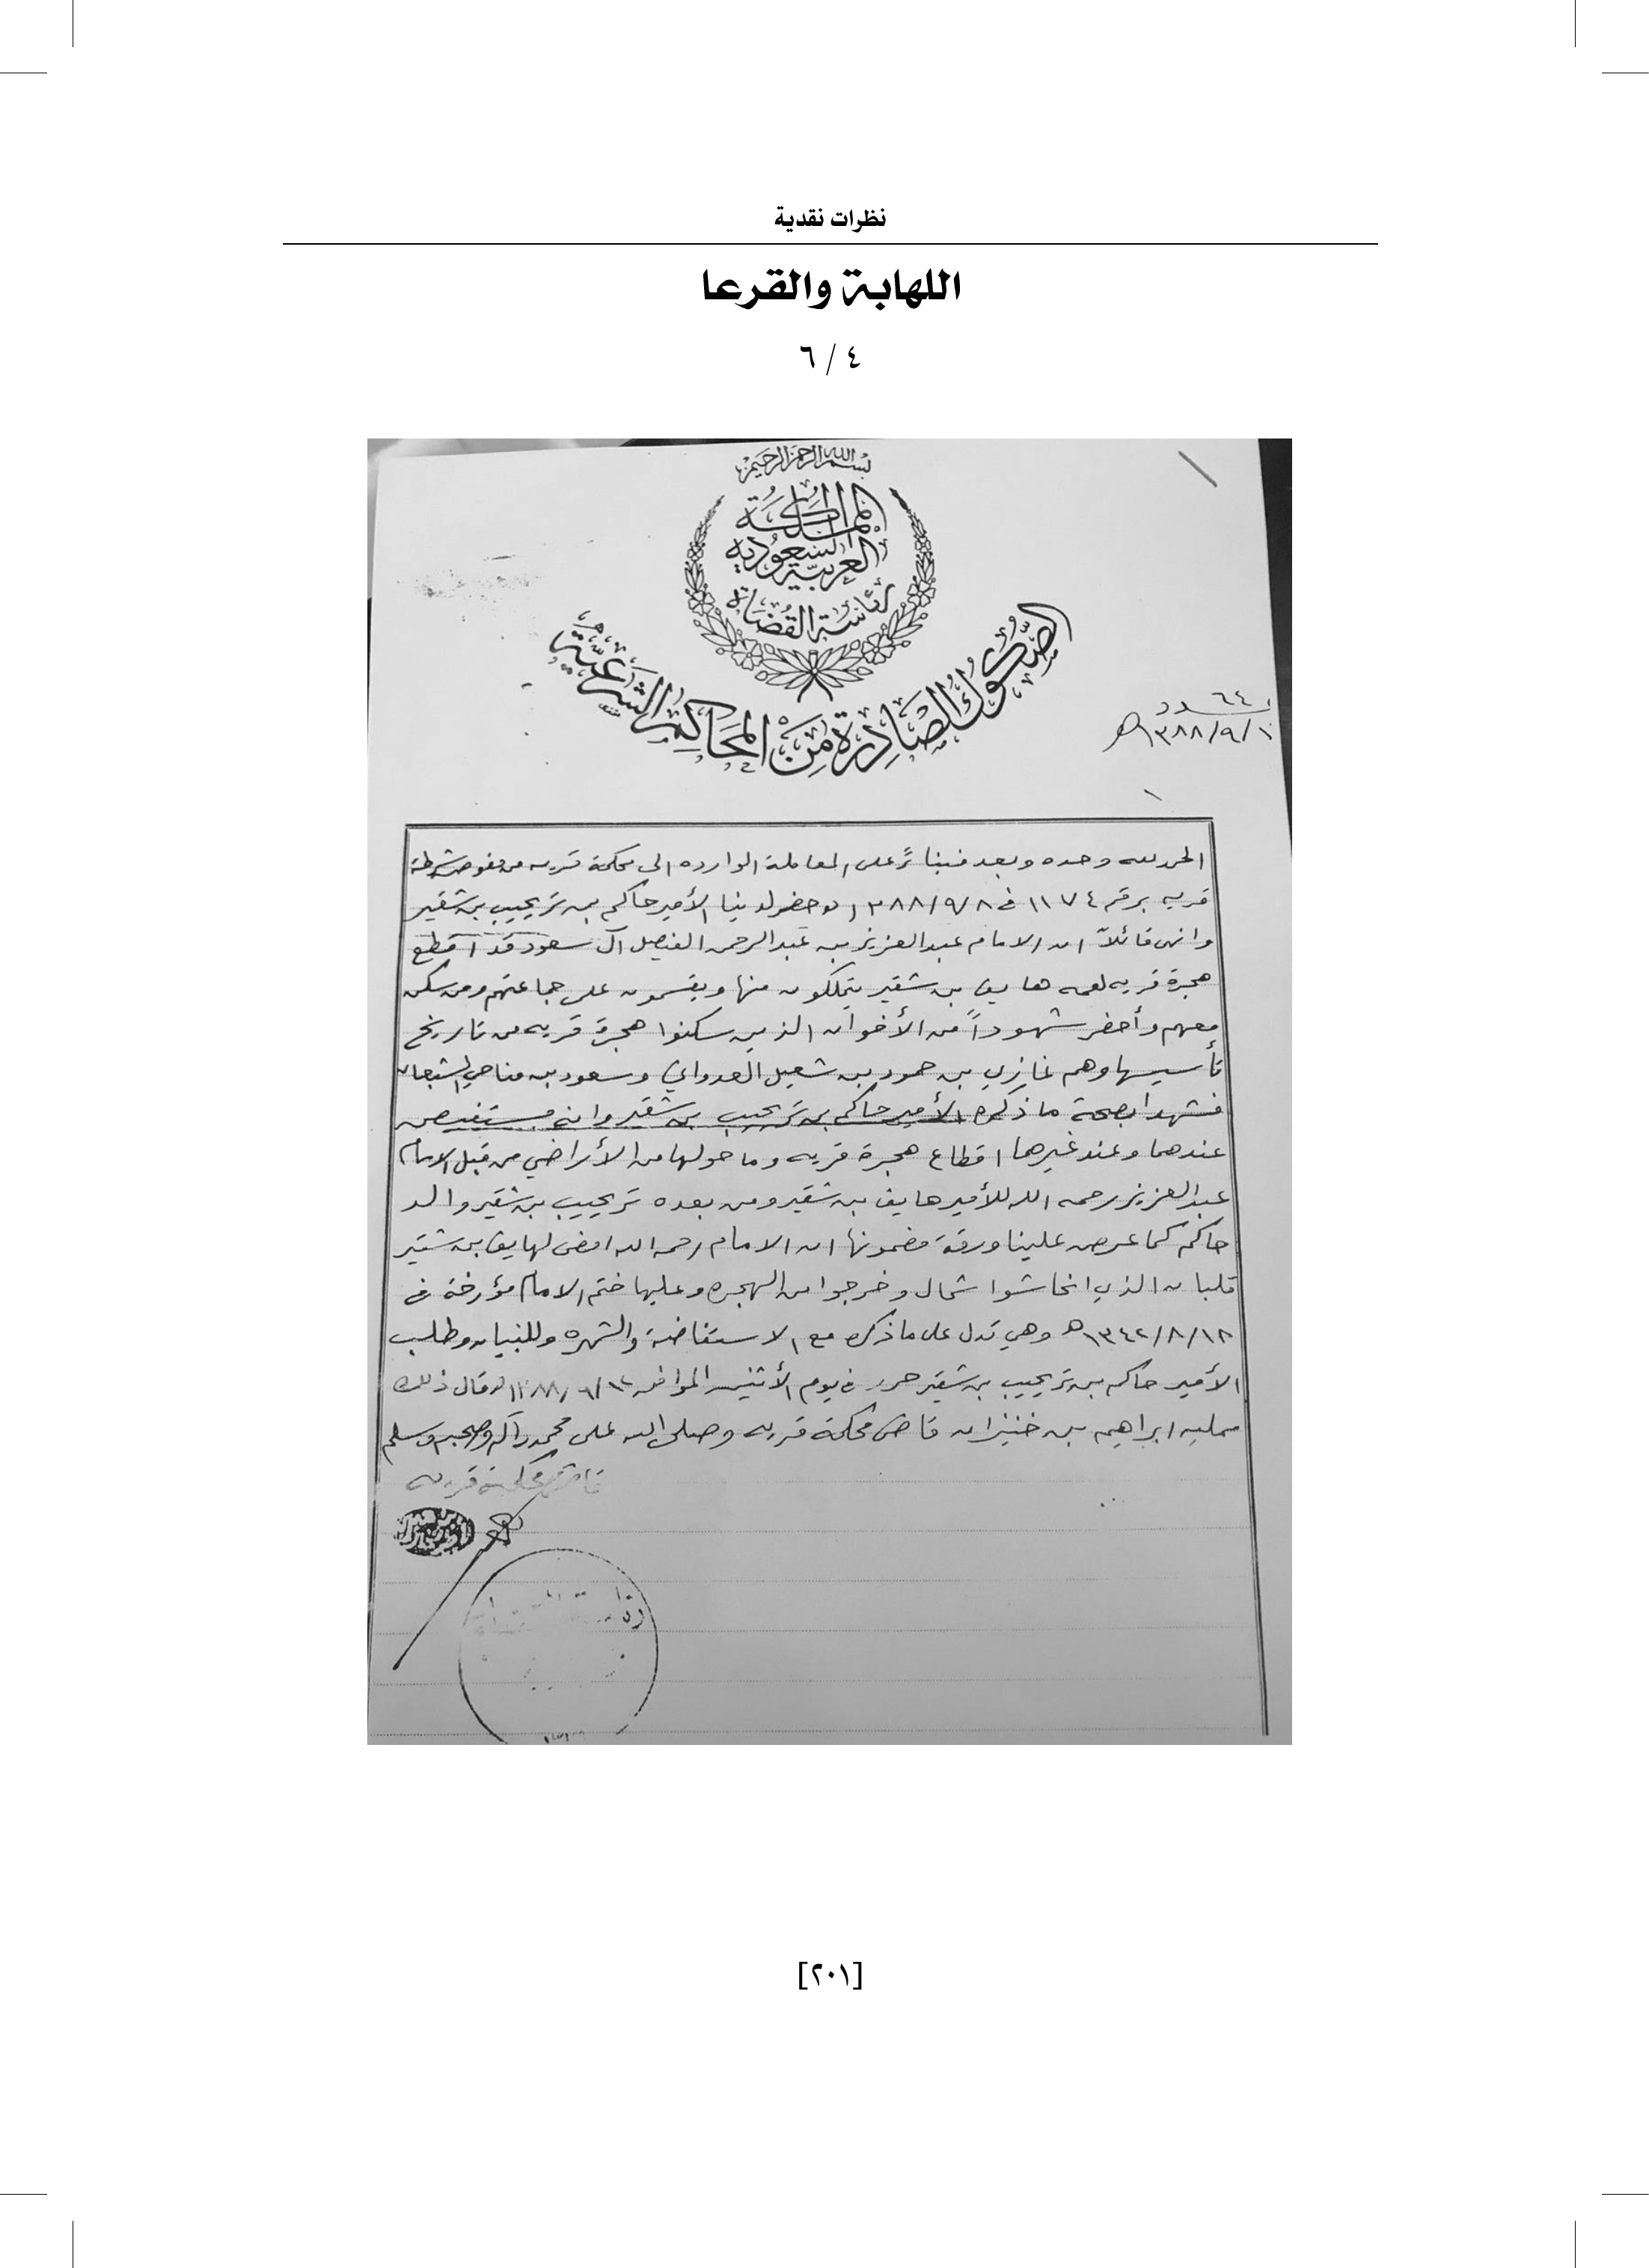 نظرات نقدية
اللهابة والقرعا
٤ / ٦
بسم الله الرحمن الرحيم
المملكة
العربية السعودية
رئاسة القضاة
الصكوك الصادرة من المحاكم الشرعية
٦٤
١٣٨٨/٩/١٠هـ
الحمد لله وحده وبعد فبناءً على المعاملة الوارده الى محكمة قريه من مفوض شرطة
قريه برقم ١١٧٤ في ١٣٨٨/٩/٨ حضر لدينا الأمير حاكم بن تريحيب بن شقير
وانهى قائلاً ان الامام عبدالعزيز بن عبدالرحمن الفيصل آل سعود قد اقطع
هجرة قريه لعمه هايف بن شقير يتملكون منها ويقسمون على جماعتهم ومن سكن
معهم وأحضر شهوداً من الأخوان الذين سكنوا هجرة قريه من تاريخ
تأسيسها وهم غازي بن حمود بن شعيل العدواني وسعود بن مناحي
فشهدا بصحة ما ذكره الأمير حاكم بن تريحيب بن شقير وانه مستفيض
عندهما وعند غيرهما اقطاع هجرة قريه وما حولها من الأراضي من قبل الامام
عبدالعزيز رحمه الله للأمير هايف بن شقير ومن بعده تريحيب بن شقير والد
حاكم كما عرض علينا ورقة مضمونها ان الامام رحمه الله امضى لهايف بن شقير
قلبان الذي انحاشوا شمال وخرجوا من الهجره وعليها ختم الامام مؤرخة في
١٣٤٢/٨/١٨هـ وهي تدل على ما ذكره مع الاستفاضة والشهره وللبيان وطلب
الأمير حاكم بن تريحيب بن شقير حرر في يوم الأثنين الموافق قال ذلك
ممليه ابراهيم بن خنيزان قاضي محكمة قريه وصلى الله على محمد وآله وصحبه وسلم
قاضي محكمة قريه
[٢٠١]